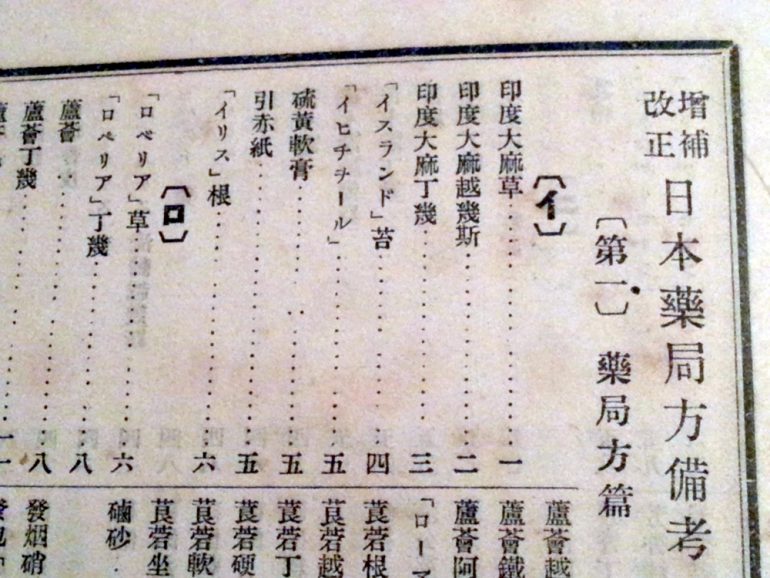 增補改正 日本藥局方備考
〔第一〕 藥局方篇
〔イ〕
印度大麻草 一
印度大麻越幾斯 二
印度大麻丁幾 三
「イスランド」苔 四
「イヒチチール」 五
硫黃軟膏 五
引赤紙 五
「イリス」根 六
〔ロ〕
「ロベリア」草 六
「ロベリア」丁幾 八
蘆薈 八
蘆薈丁幾
蘆薈越
蘆薈鐵
蘆薈阿
「ローマ
莨菪根
莨菪越
莨菪丁
莨菪硬
莨菪軟
莨菪坐
磠砂
發烟硝